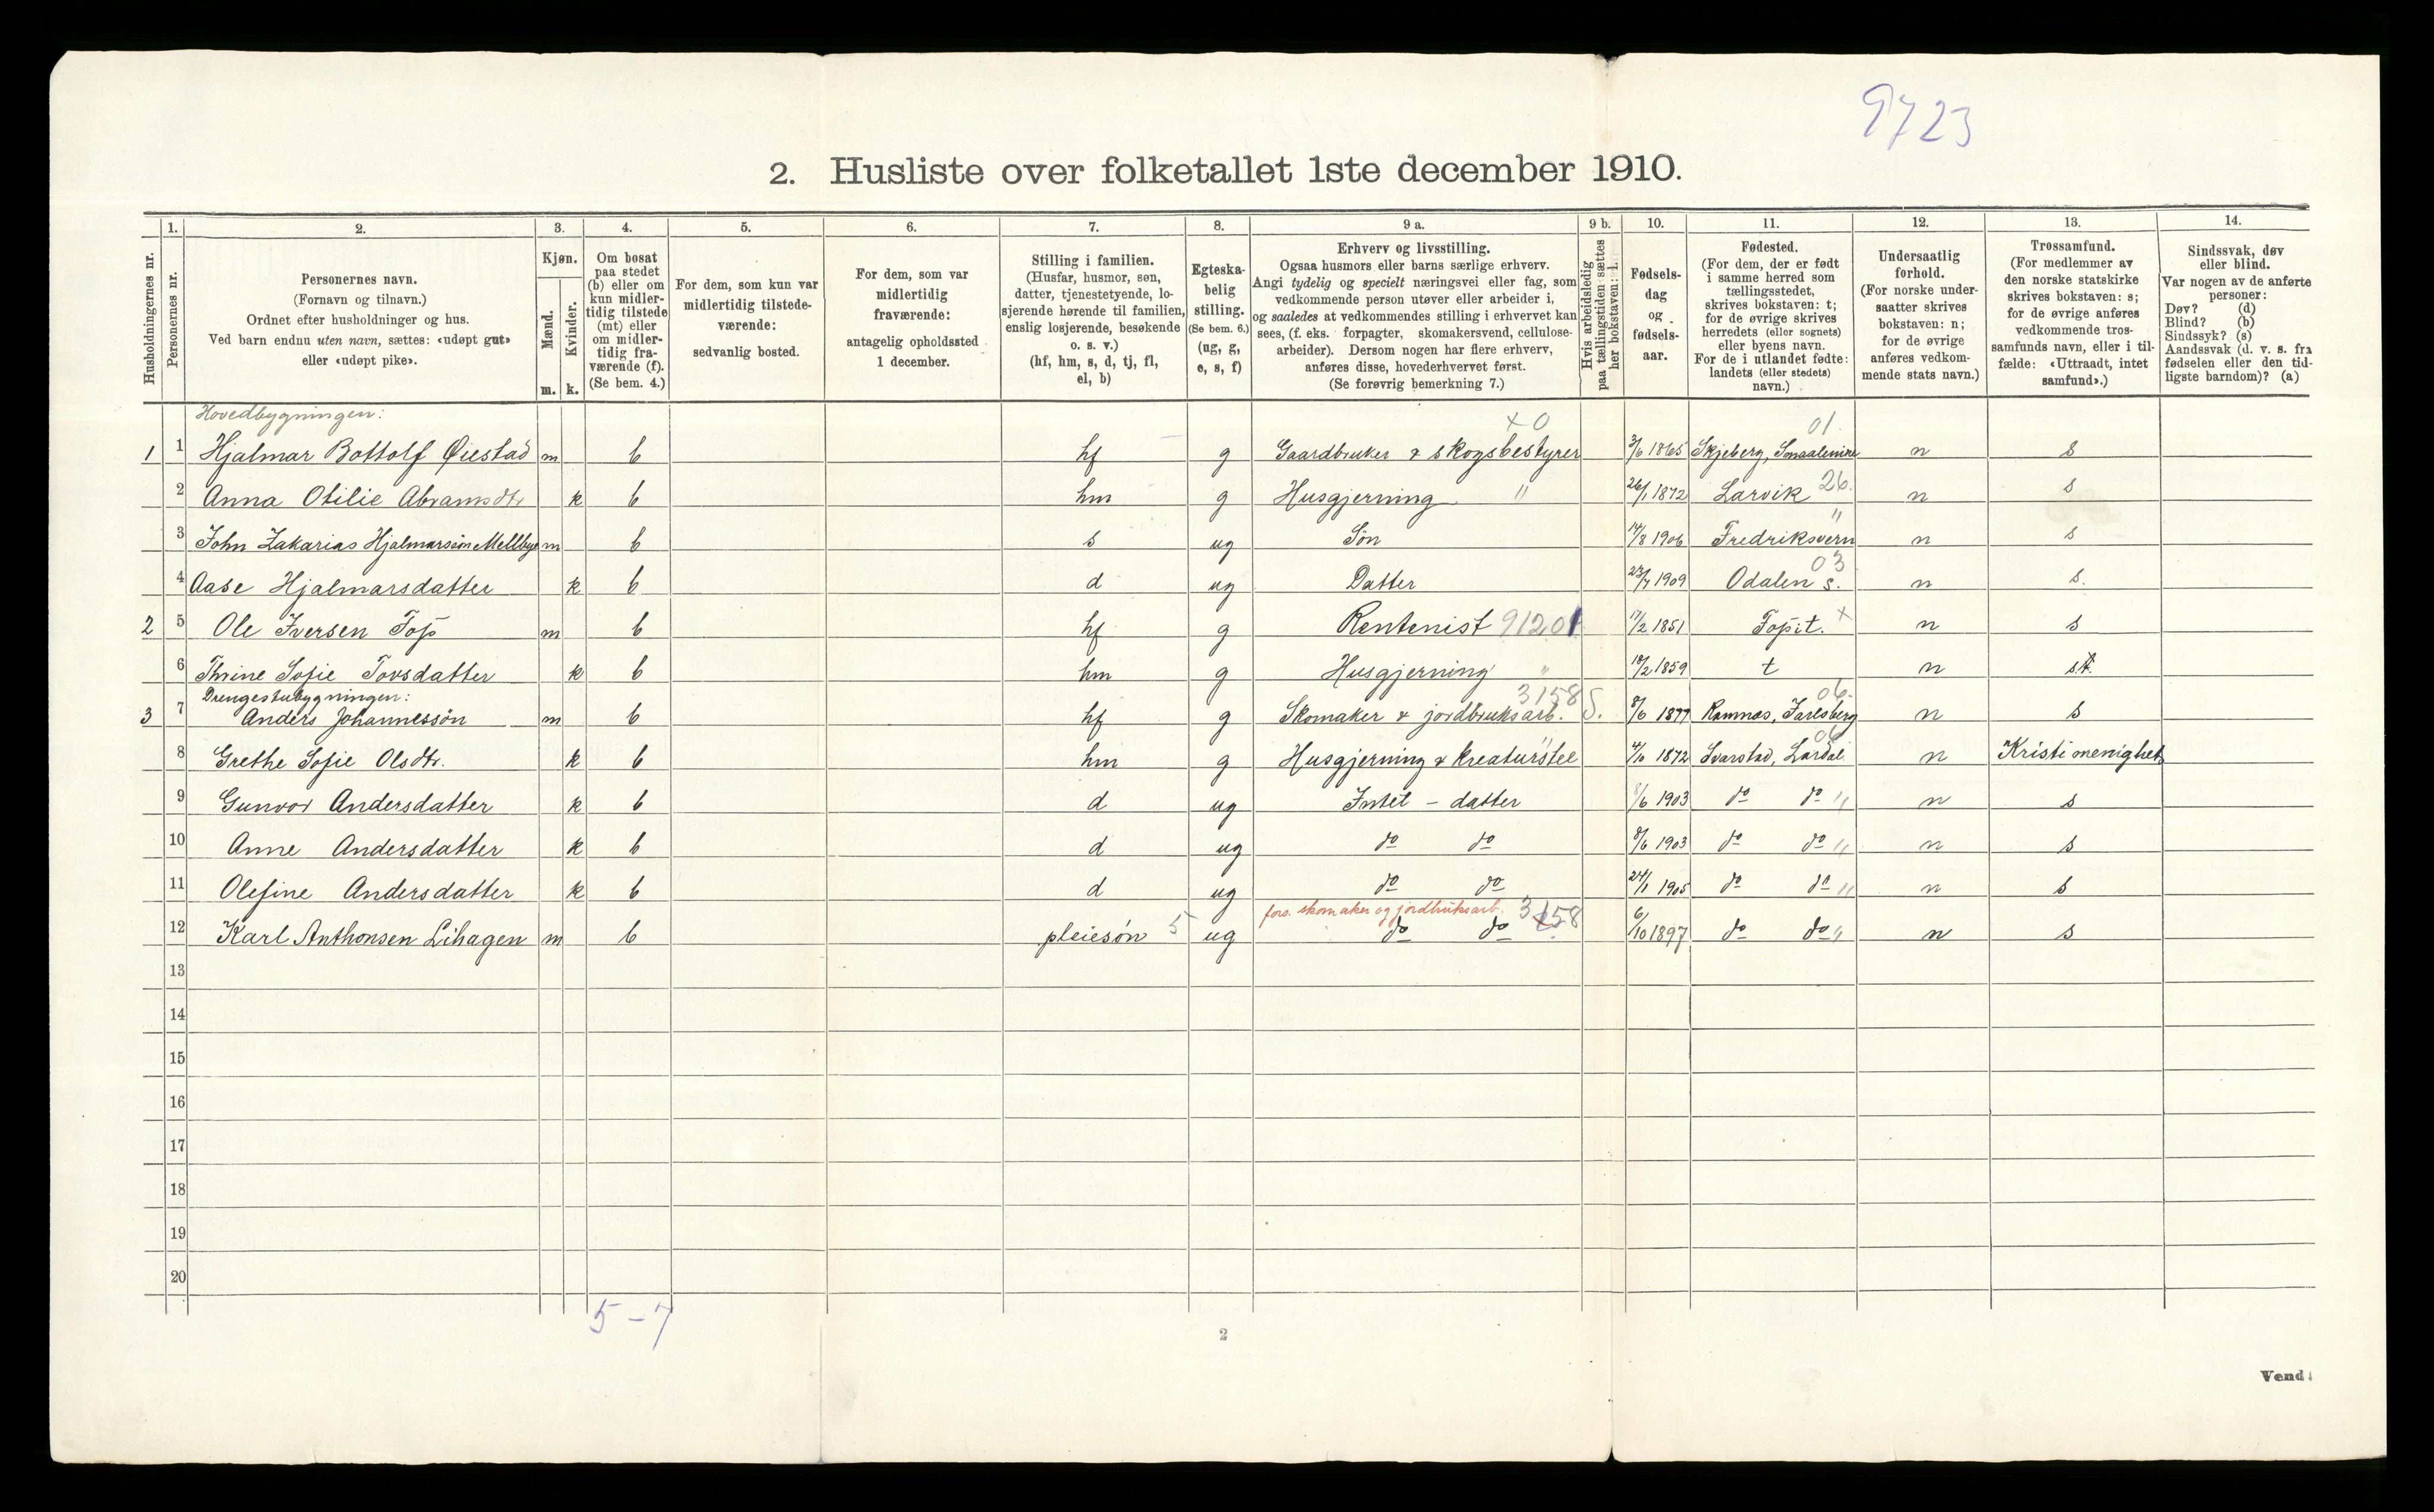 9723
2. Husliste over folketallet 1ste december 1910.
Husholdningernes nr.
1.
Personernes nr.
2.
Personernes navn.
(Fornavn og tilnavn.)
Ordnet efter husholdninger og hus.
Ved barn endnu uten navn, sættes: «udøpt gut»
eller «udøpt pike».
3.
Kjøn.
Mænd.
m.
Kvinder.
k.
4.
Om bosat
paa stedet
(b) eller om
kun midler-
tidig tilstede
(mt) eller
om midler-
tidig fra-
værende (f).
(Se bem. 4.)
5.
For dem, som kun var
midlertidig tilstede-
værende:
sedvanlig bosted.
6.
For dem, som var
midlertidig
fraværende:
antagelig opholdssted
1 december.
7.
Stilling i familien.
(Husfar, husmor, søn,
datter, tjenestetyende, lo-
sjerende hørende til familien,
enslig losjerende, besøkende
o. s. v.)
(hf, hm, s, d, tj, fl,
el, b)
8.
Egteska-
belig
stilling.
(Se bem. 6.)
(ug, g,
e, s, f)
9 a.
Erhverv og livsstilling.
Ogsaa husmors eller barns særlige erhverv.
Angi tydelig og specielt næringsvei eller fag, som
vedkommende person utøver eller arbeider i,
og saaledes at vedkommendes stilling i erhvervet kan
sees, (f. eks. forpagter, skomakersvend, cellulose-
arbeider). Dersom nogen har flere erhverv,
anføres disse, hovederhvervet først.
(Se forøvrig bemerkning 7.)
9 b.
Hvis arbeidsledig
paa tællingstiden sættes
her bokstaven: l.
10.
Fødsels-
dag
og
fødsels-
aar.
11.
Fødested.
(For dem, der er født
i samme herred som
tællingsstedet,
skrives bokstaven: t;
for de øvrige skrives
herredets (eller sognets)
eller byens navn.
For de i utlandet fødte:
landets (eller stedets)
navn.)
12.
Undersaatlig
forhold.
(For norske under-
saatter skrives
bokstaven: n;
for de øvrige
anføres vedkom-
mende stats navn.)
13.
Trossamfund.
(For medlemmer av
den norske statskirke
skrives bokstaven: s;
for de øvrige anføres
vedkommende tros-
samfunds navn, eller i til-
fælde: «Uttraadt, intet
samfund».)
14.
Sindssvak, døv
eller blind.
Var nogen av de anførte
personer:
Døv? (d)
Blind? (b)
Sindssyk? (s)
Aandssvak (d. v. s. fra
fødselen eller den tid-
ligste barndom)? (a)
Hovedbygningen: x 0 01.
1 1 Hjalmar Bottolf Øiestad m b hf g Gaardbruker & skogsbestyrer 3/6 1865 Skjeberg, Smaalenine n s
2 Anna Otilie Abramsdtr k b hm g Husgjerning " 26/1 1872 Larvik 26. n s
3 John Zakarias Hjalmarsøn Mellbye m b s ug Søn 14/8 1906 Fredriksvern " n s
4 Aase Hjalmarsdatter k b d ug Datter 23/7 1909 Odalen s. 03 n s.
2 5 Ole Iversen m b hf g Rentenist 91201 17/2 1851 x n s
6 Thrine Sofie Tovsdatter k b hm g Husgjerning " 18/2 1859 t n s
Drengestubygningen: 3158 06.
3 7 Anders Johannessøn m b hf g Skomaker & jordbruksarb. S. 8/6 1877 Ramnæs, Jarlsberg n s
8 Grethe Sofie Olsdtr. k b hm g Husgjerning & kreaturstel " 4/10 1872 Svarstad, Lardal 06 n Kristi menighet
9 Gunvor Andersdatter k b d ug Intet - datter 8/6 1903 do do " n s
10 Anne Andersdatter k b d ug do do 8/6 1903 do do " n s
11 Olefine Andersdatter k b d ug do do 24/1 1905 do do " n s
fors. skomaker og jordbruksarb. 3158
12 Karl Anthonsen Lihagen m b pleiesøn 5 ug do do 6/10 1897 do do " n s
13
14
15
16
17
18
19
20
5-7
2
Vend!